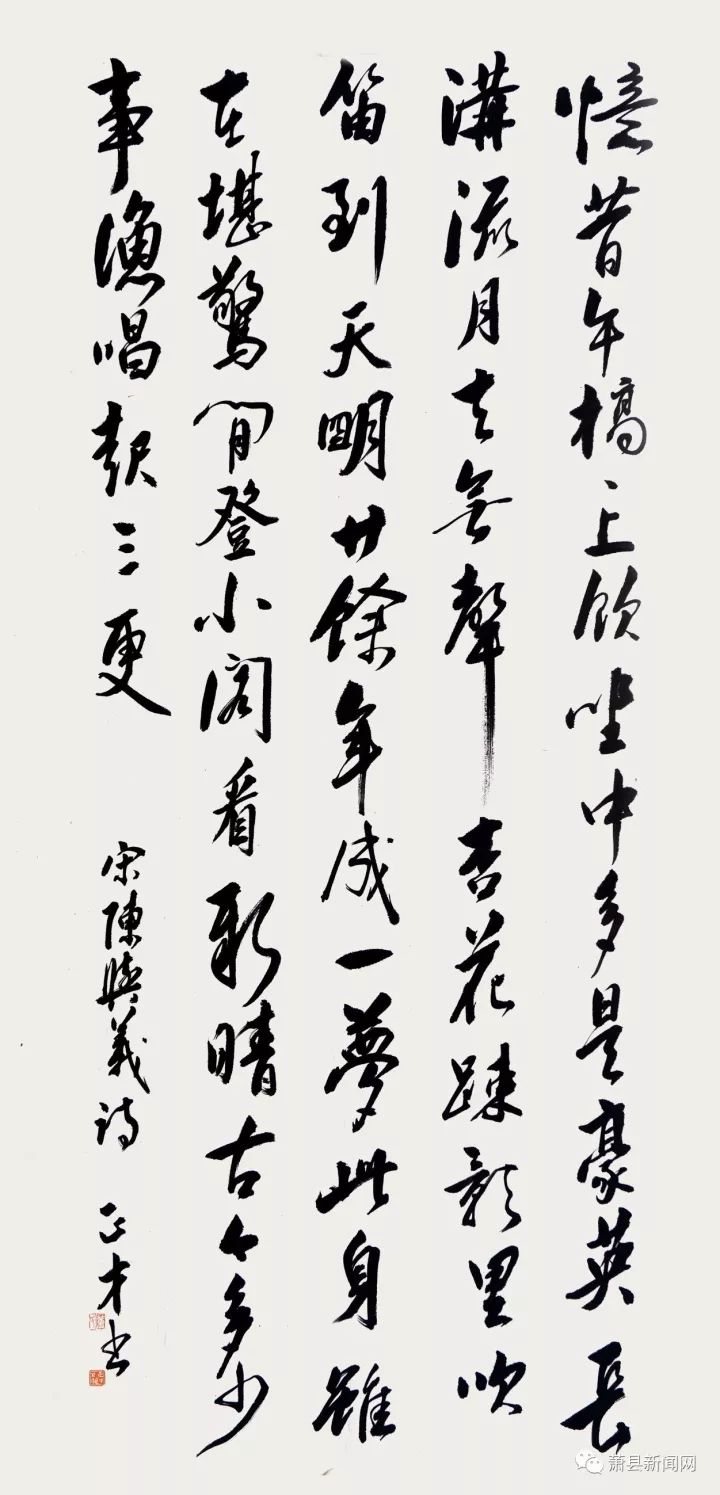 憶昔午橋橋上飲坐中多是豪英長
溝流月去無聲杏花疎影里吹
笛到天明廿餘年成一夢此身雖
在堪驚閒登小閣看新晴古今多少
事漁唱起三更
宋陳與義诗 正才书
萧县新闻网